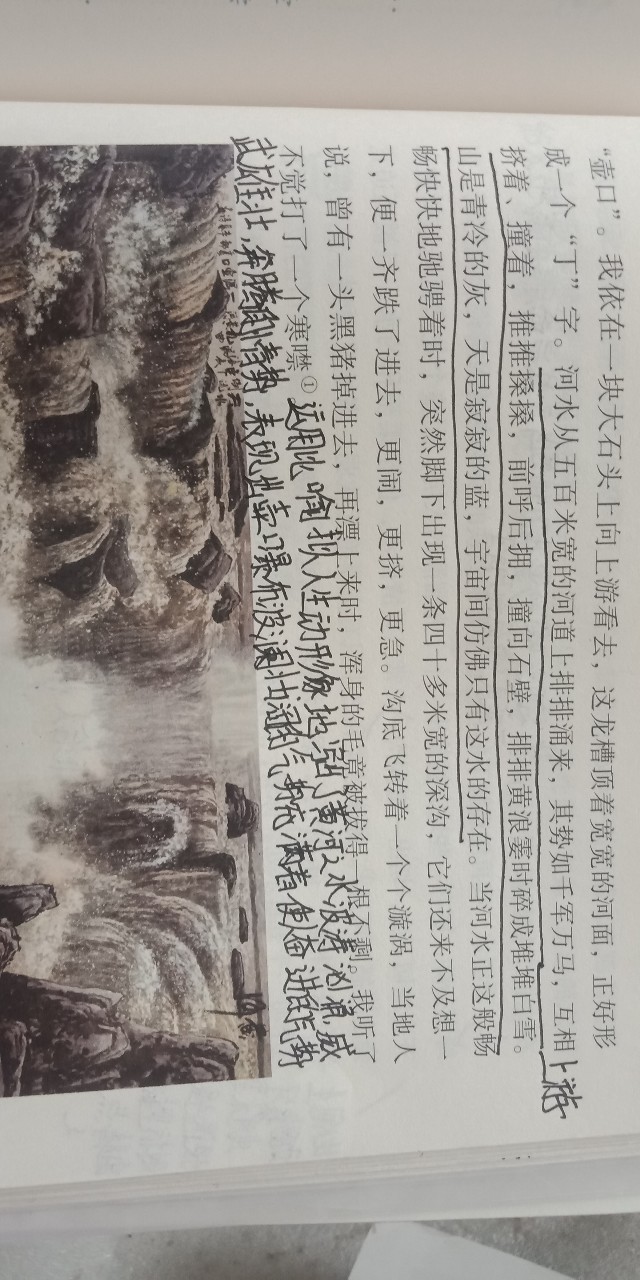 “壶口”。我依在一块大石头上向上游看去，这龙槽顶着宽宽的河面，正好形
成一个“丁”字。河水从五百米宽的河道上排排涌来，其势如千军万马，互相
上游
挤着、撞着，推推搡搡，前呼后拥，撞向石壁，排排黄浪霎时碎成堆堆白雪。
山是青冷的灰，天是寂寂的蓝，宇宙间仿佛只有这水的存在。当河水正这般畅
畅快快地驰骋着时，突然脚下出现一条四十多米宽的深沟，它们还来不及想一
下，便一齐跌了进去，更闹，更挤，更急。沟底飞转着一个个漩涡，当地人
说，曾有一头黑猪掉进去，再漂上来时，浑身的毛竟被拔得一根不剩。我听了
不觉打了一个寒噤。
①运用比喻拟人生动形象地写出了黄河之水波涛汹涌威
武雄壮，奔腾到情势，表现出壶口瀑布波澜壮阔的气势充满着使人奋进的气势